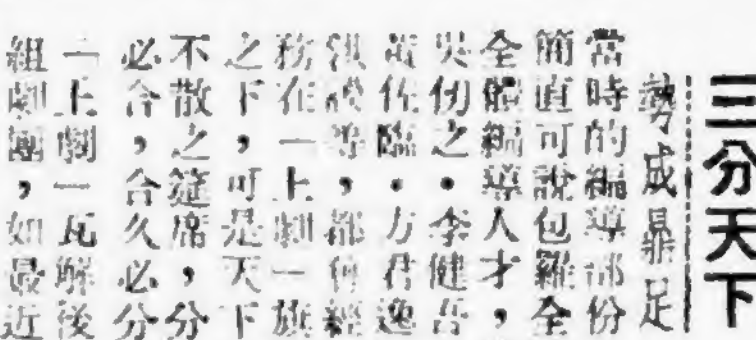 三分天下
勢成鼎足
當時的編導部份
簡直可說包羅全
全體編導人才，
吳仞之・李健吾
黃佐臨・方君逸
洪謨等，都何經
務在一上劇一旗
之下，可是天下
不散之筵席，分
必合，合久必分
一上劇一瓦解後
組劇團，如最近